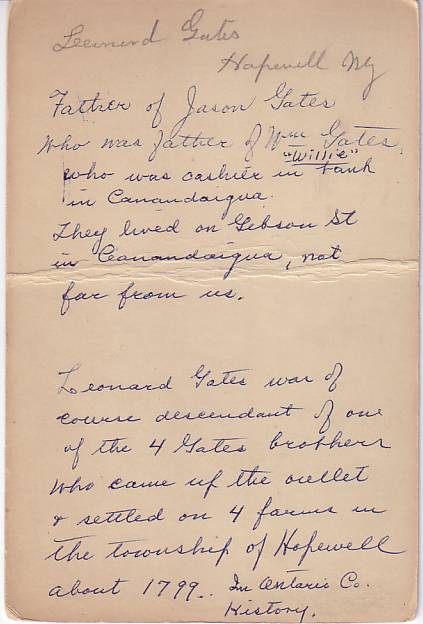 Leonard Gates
Hopewell NY
Father of Jason Gates
who was father of Wm Gates.
"Willie"
who was cashier in bank
in Canandaigua.
They lived on Gibson St
in Canandaigua, not
far from us.
Leonard Gates was of
course descendant of one
of the 4 Gates brothers
who came up the outlet
& settled on 4 farms in
the township of Hopewell
about 1799. In Ontario Co.
History.